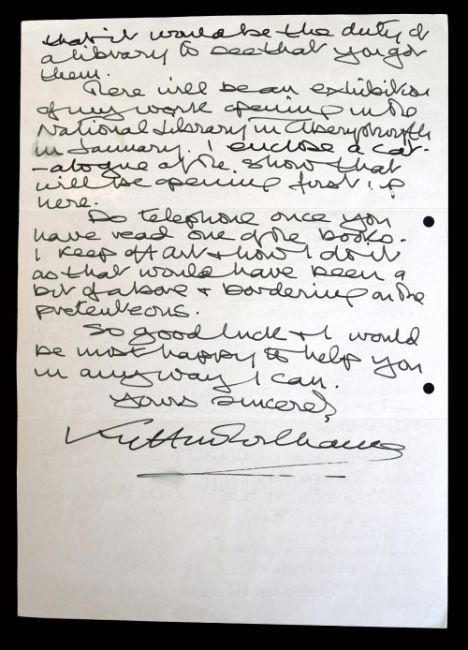 that it would be the duty of
a library to see that you got
them.
There will be an exhibition
of my work opening in the
National Library in Aberystwyth
in January. I enclose a cat-
-alogue of the show that
will be opening first up
here.
Do telephone once you
have read one of the books.
I keep off art & how I do it
as that would have been a
bit of a bore & bordering on the
pretenteous.
So good luck & I would
be most happy to help you
in any way I can.
Yours sincerely
Kyffin Williams